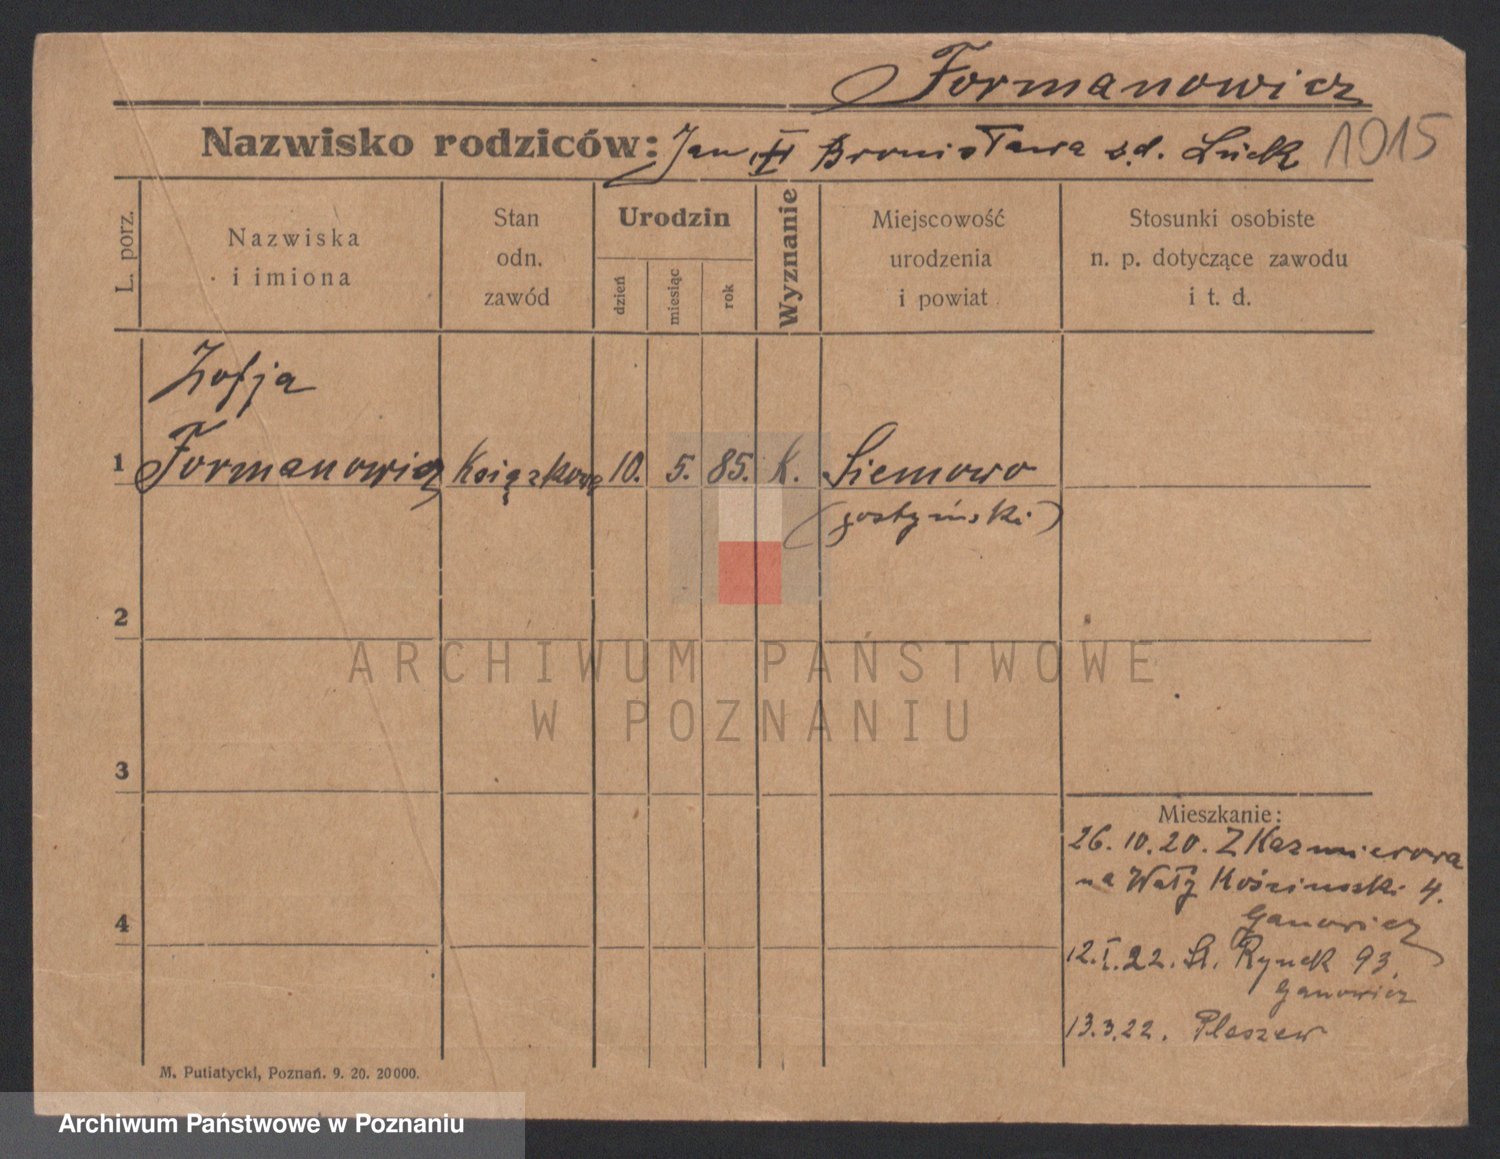 Formanowicz
Nazwisko rodziców: Jan, † Bronisława z.d. Lück 1015
L. porz.
Nazwiska
i imiona
Stan
odn.
zawód
Urodzin
dzień
miesiąc
rok
Wyznanie
Miejscowość
urodzenia
i powiat
Stosunki osobiste
n. p. dotyczące zawodu
i t. d.
Zofja
1 Formanowicz Książkowa 10. 5. 85. K. Siemowo
(gostyński)
2
ARCHIWUM PAŃSTWOWE
W POZNANIU
3
Mieszkanie:
26. 10. 20. Z Kazmierowa
na Wały 4.
4
Ganowicz
12. I. 22. St. Rynek 93.
Ganowicz
13.3.22. Pleszew
M. Putiatycki, Poznań. 9. 20. 20000.
Archiwum Państwowe w Poznaniu